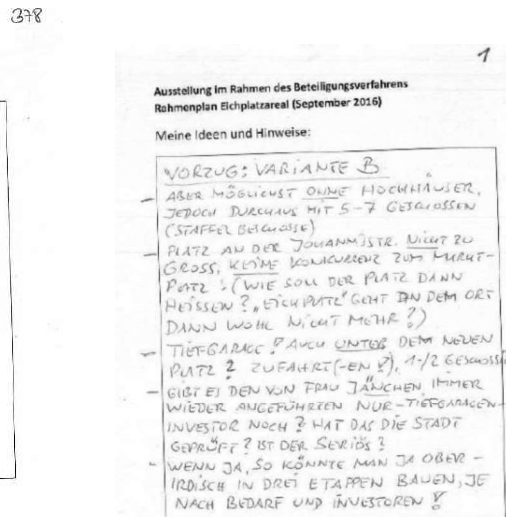 378
1
Ausstellung im Rahmen des Beteiligungsverfahrens
Rahmenplan Eichplatzareal (September 2016)
Meine Ideen und Hinweise:
VORZUG: VARIANTE B
– ABER MÖGLICHST OHNE HOCHHÄUSER,
JEDOCH DURCHAUS MIT 5-7 GESCHOSSEN
(STAFFELGESCHOSSE)
– PLATZ AN DER JOHANNISSTR. NICHT ZU
GROSS, KEINE KONKURRENZ ZUM MARKT-
PLATZ! (WIE SOLL DER PLATZ DANN
HEISSEN? „EICHPLATZ" GEHT AN DEM ORT
DANN WOHL NICHT MEHR?)
– TIEFGARAGE! AUCH UNTER DEM NEUEN
PLATZ? ZUFAHRT(-EN?), 1-/2 GESCHOSSI
– GIBT ES DEN VON FRAU JÄNCHEN IMMER
WIEDER ANGEFÜHRTEN NUR-TIEFGARAGEN-
INVESTOR NOCH? HAT DAS DIE STADT
GEPRÜFT? IST DER SERIÖS?
– WENN JA, SO KÖNNTE MAN JA OBER-
IRDISCH IN DREI ETAPPEN BAUEN, JE
NACH BEDARF UND INVESTOREN!